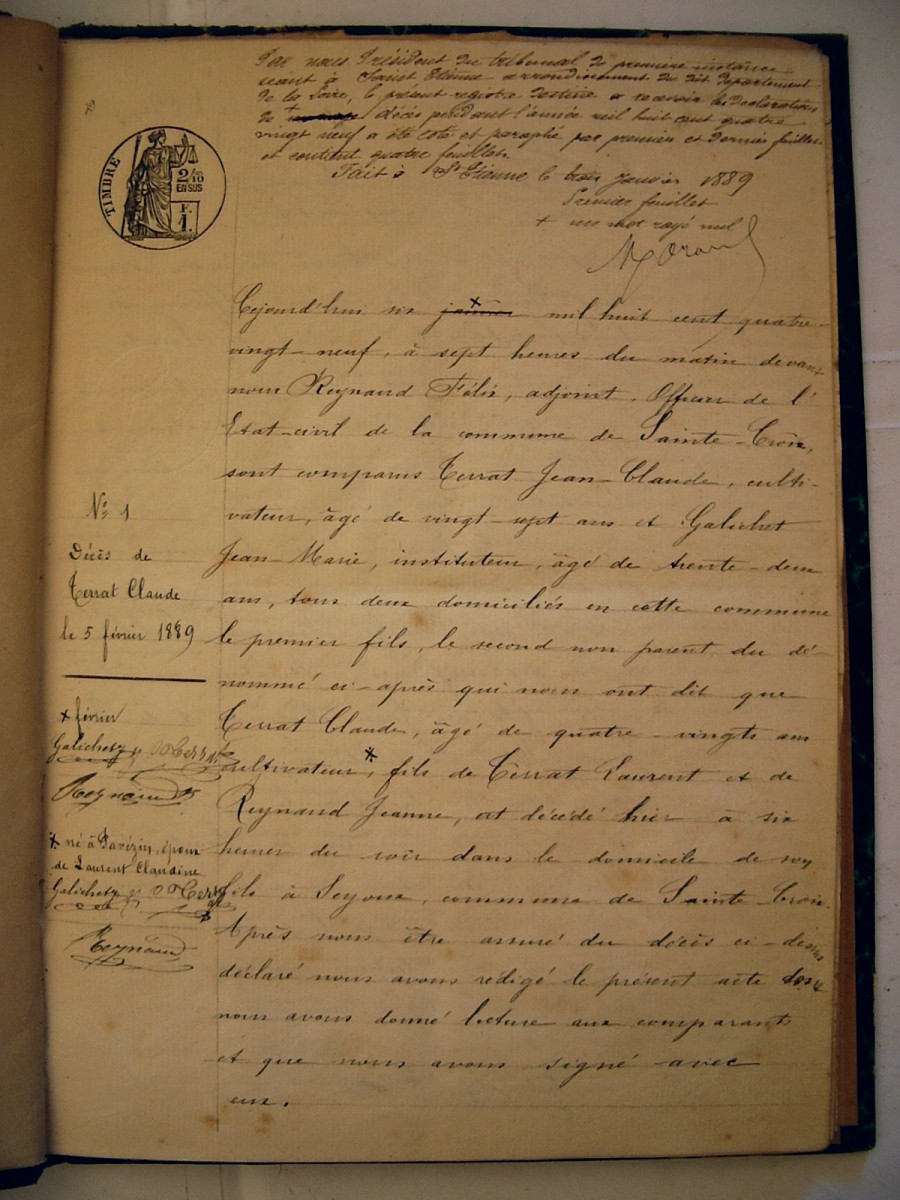 Par nous Président du tribunal de première instance
séant à Saint Etienne arrondissement du dit département
de la Loire, le présent registre destiné à recevoir les déclarations
de + décès pendant l'année mil huit cent quatre
vingt neuf a été coté et paraphé par premier et dernier feuillet
et contient quatre feuillets.
Fait à St Etienne le trois janvier 1889
Premier feuillet
+ un mot rayé nul
TIMBRE
2/10
EN SUS
F.
1.
Cejourd'hui six janvier × mil huit cent quatre-
vingt-neuf, à sept heures du matin devant
nous Reynaud Félix, adjoint, Officier de l'
Etat-civil de la commune de Sainte-Croix,
sont comparus Terrat Jean-Claude, culti-
vateur, âgé de vingt-sept ans et Galichet
Jean-Marie, instituteur, âgé de trente-deux
ans, tous deux domiciliés en cette commune
le premier fils, le second non parent du dé-
nommé ci-après qui nous ont dit que
Terrat Claude, âgé de quatre-vingts ans
cultivateur, × fils de Terrat Laurent et de
Reynaud Jeanne, est décédé hier à six
heures du soir dans le domicile de son
fils à Seyoux, commune de Sainte-Croix.
Après nous être assuré du décès ci-dessus
déclaré nous avons rédigé le présent acte dont
nous avons donné lecture aux comparants
et que nous avons signé avec
eux.
No 1
Décès de
Terrat Claude
le 5 février 1889
× février
Galichet Terrat
Reynaud
× né à Pavezin, époux
de Laurent Claudine
Galichet Terrat
Reynaud